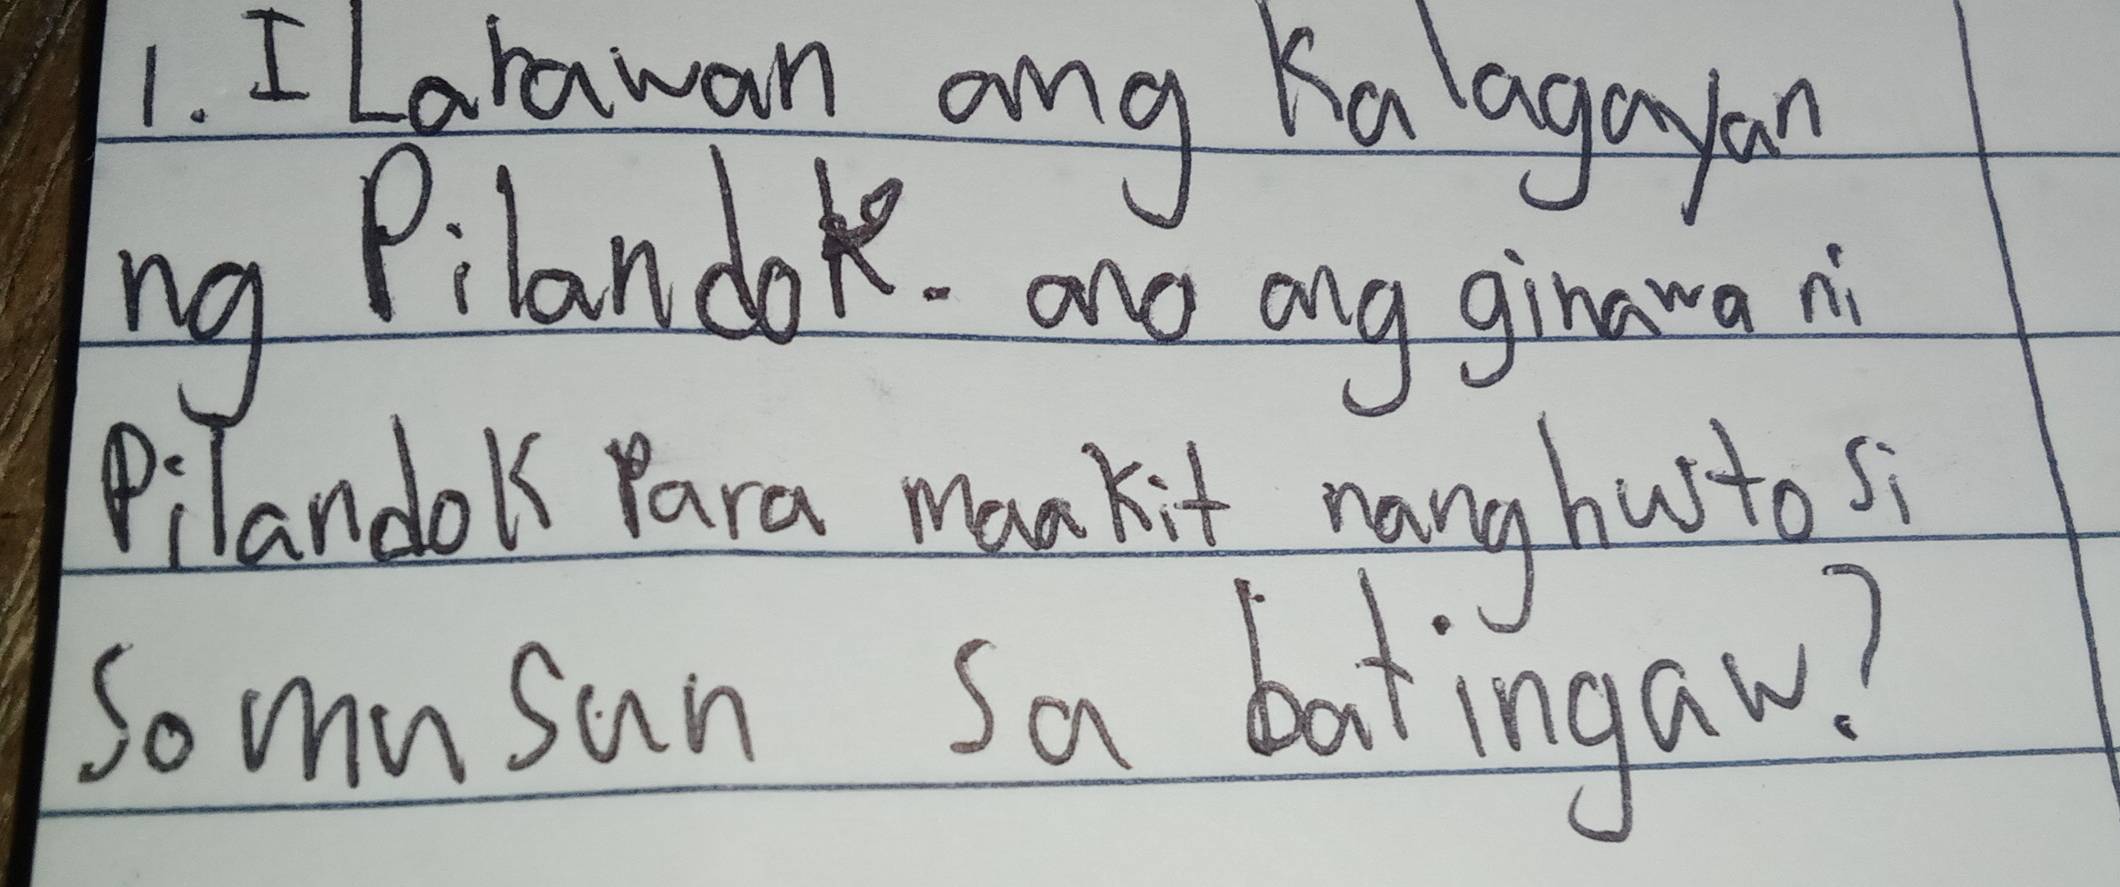 1. ILarawan ang Kalagayan
ng Pilandok. ano ang ginawa ni
Pilandok Para maakit nang husto si
Somusun sa batingaw?